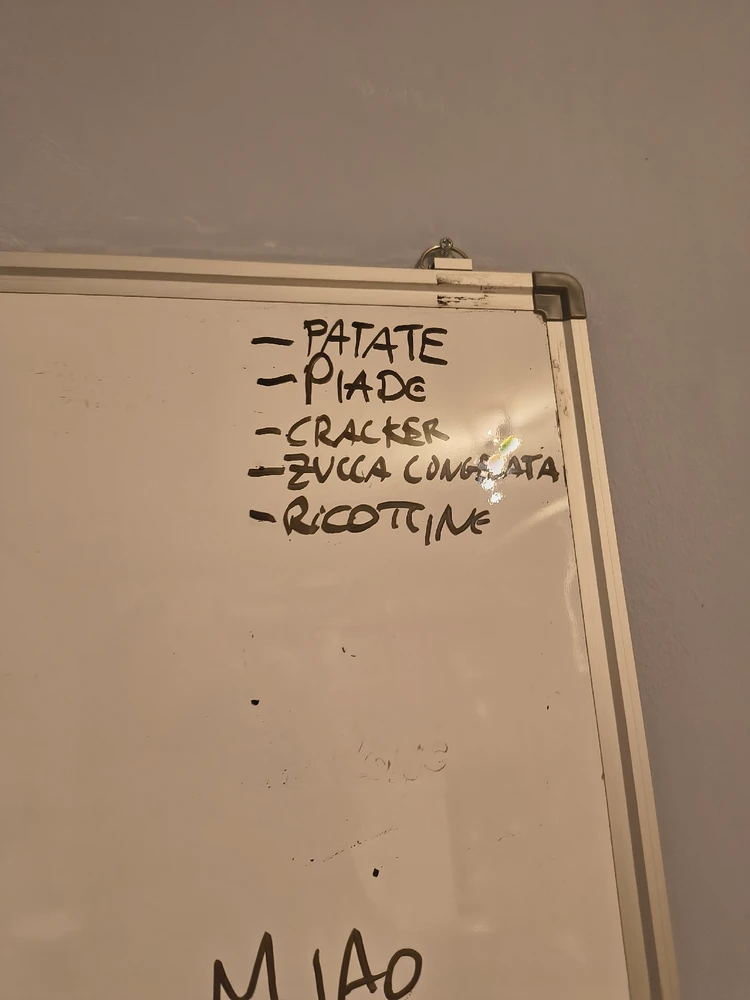 - PATATE
- PIADE
- CRACKER
- ZUCCA CONGELATA
- RICOTTINE
MIAO